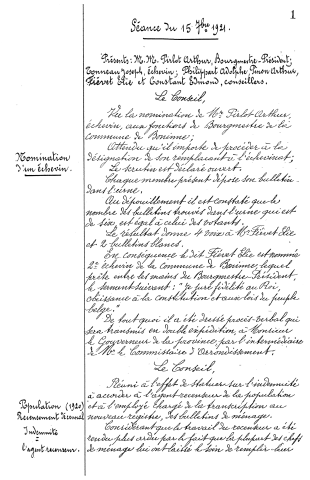 1
Séance du 15 7bre 1921.
Présents: M.M. Pirlot Arthur, Bourgmestre-Président;
Tonneau Joseph, échevin; Philippart Adolphe, Pinon Arthur,
Fiévet Elie et Constant Edmond, conseillers.
Le Conseil,
Vu la nomination de Mr Pirlot Arthur,
échevin, aux fonctions de Bourgmestre de la
commune de Boninne;
Nomination
d'un échevin.
Attendu qu'il importe de procéder à la
désignation de son remplaçant à l'échevinat;
Le scrutin est déclaré ouvert.
Chaque membre présent dépose son bulletin
dans l'urne.
Au dépouillement il est constaté que le
nombre des bulletins trouvés dans l'urne qui est
de six, est égal à celui des votants.
Le résultat donne 4 voix à Mr Fiévet Elie
et 2 bulletins blancs.
En conséquence le dit Fiévet Elie est nommé
2e échevin de la commune de Boninne, lequel
prête entre les mains du Bourgmestre-Président,
le serment suivant: "Je jure fidélité au Roi,
obéissance à la constitution et aux lois du peuple
belge."
De tout quoi il a été dressé procès-verbal qui
sera transmis en double expédition, à Monsieur
le Gouverneur de la province par l'intermédiaire
de Mr le Commissaire d'Arrondissement.
Le Conseil,
Population (1920)
Recensement décennal
Indemnité
à
l'agent recenseur.
Réuni à l'effet de statuer sur l'indemnité
à accorder à l'agent recenseur de la population
et à l'employé chargé de la transcription au
nouveau registre, des bulletins de ménage.
Considérant que le travail du recenseur a été
rendu plus ardu par le fait que la plupart des chefs
de ménage lui ont laissé le soin de remplir leur